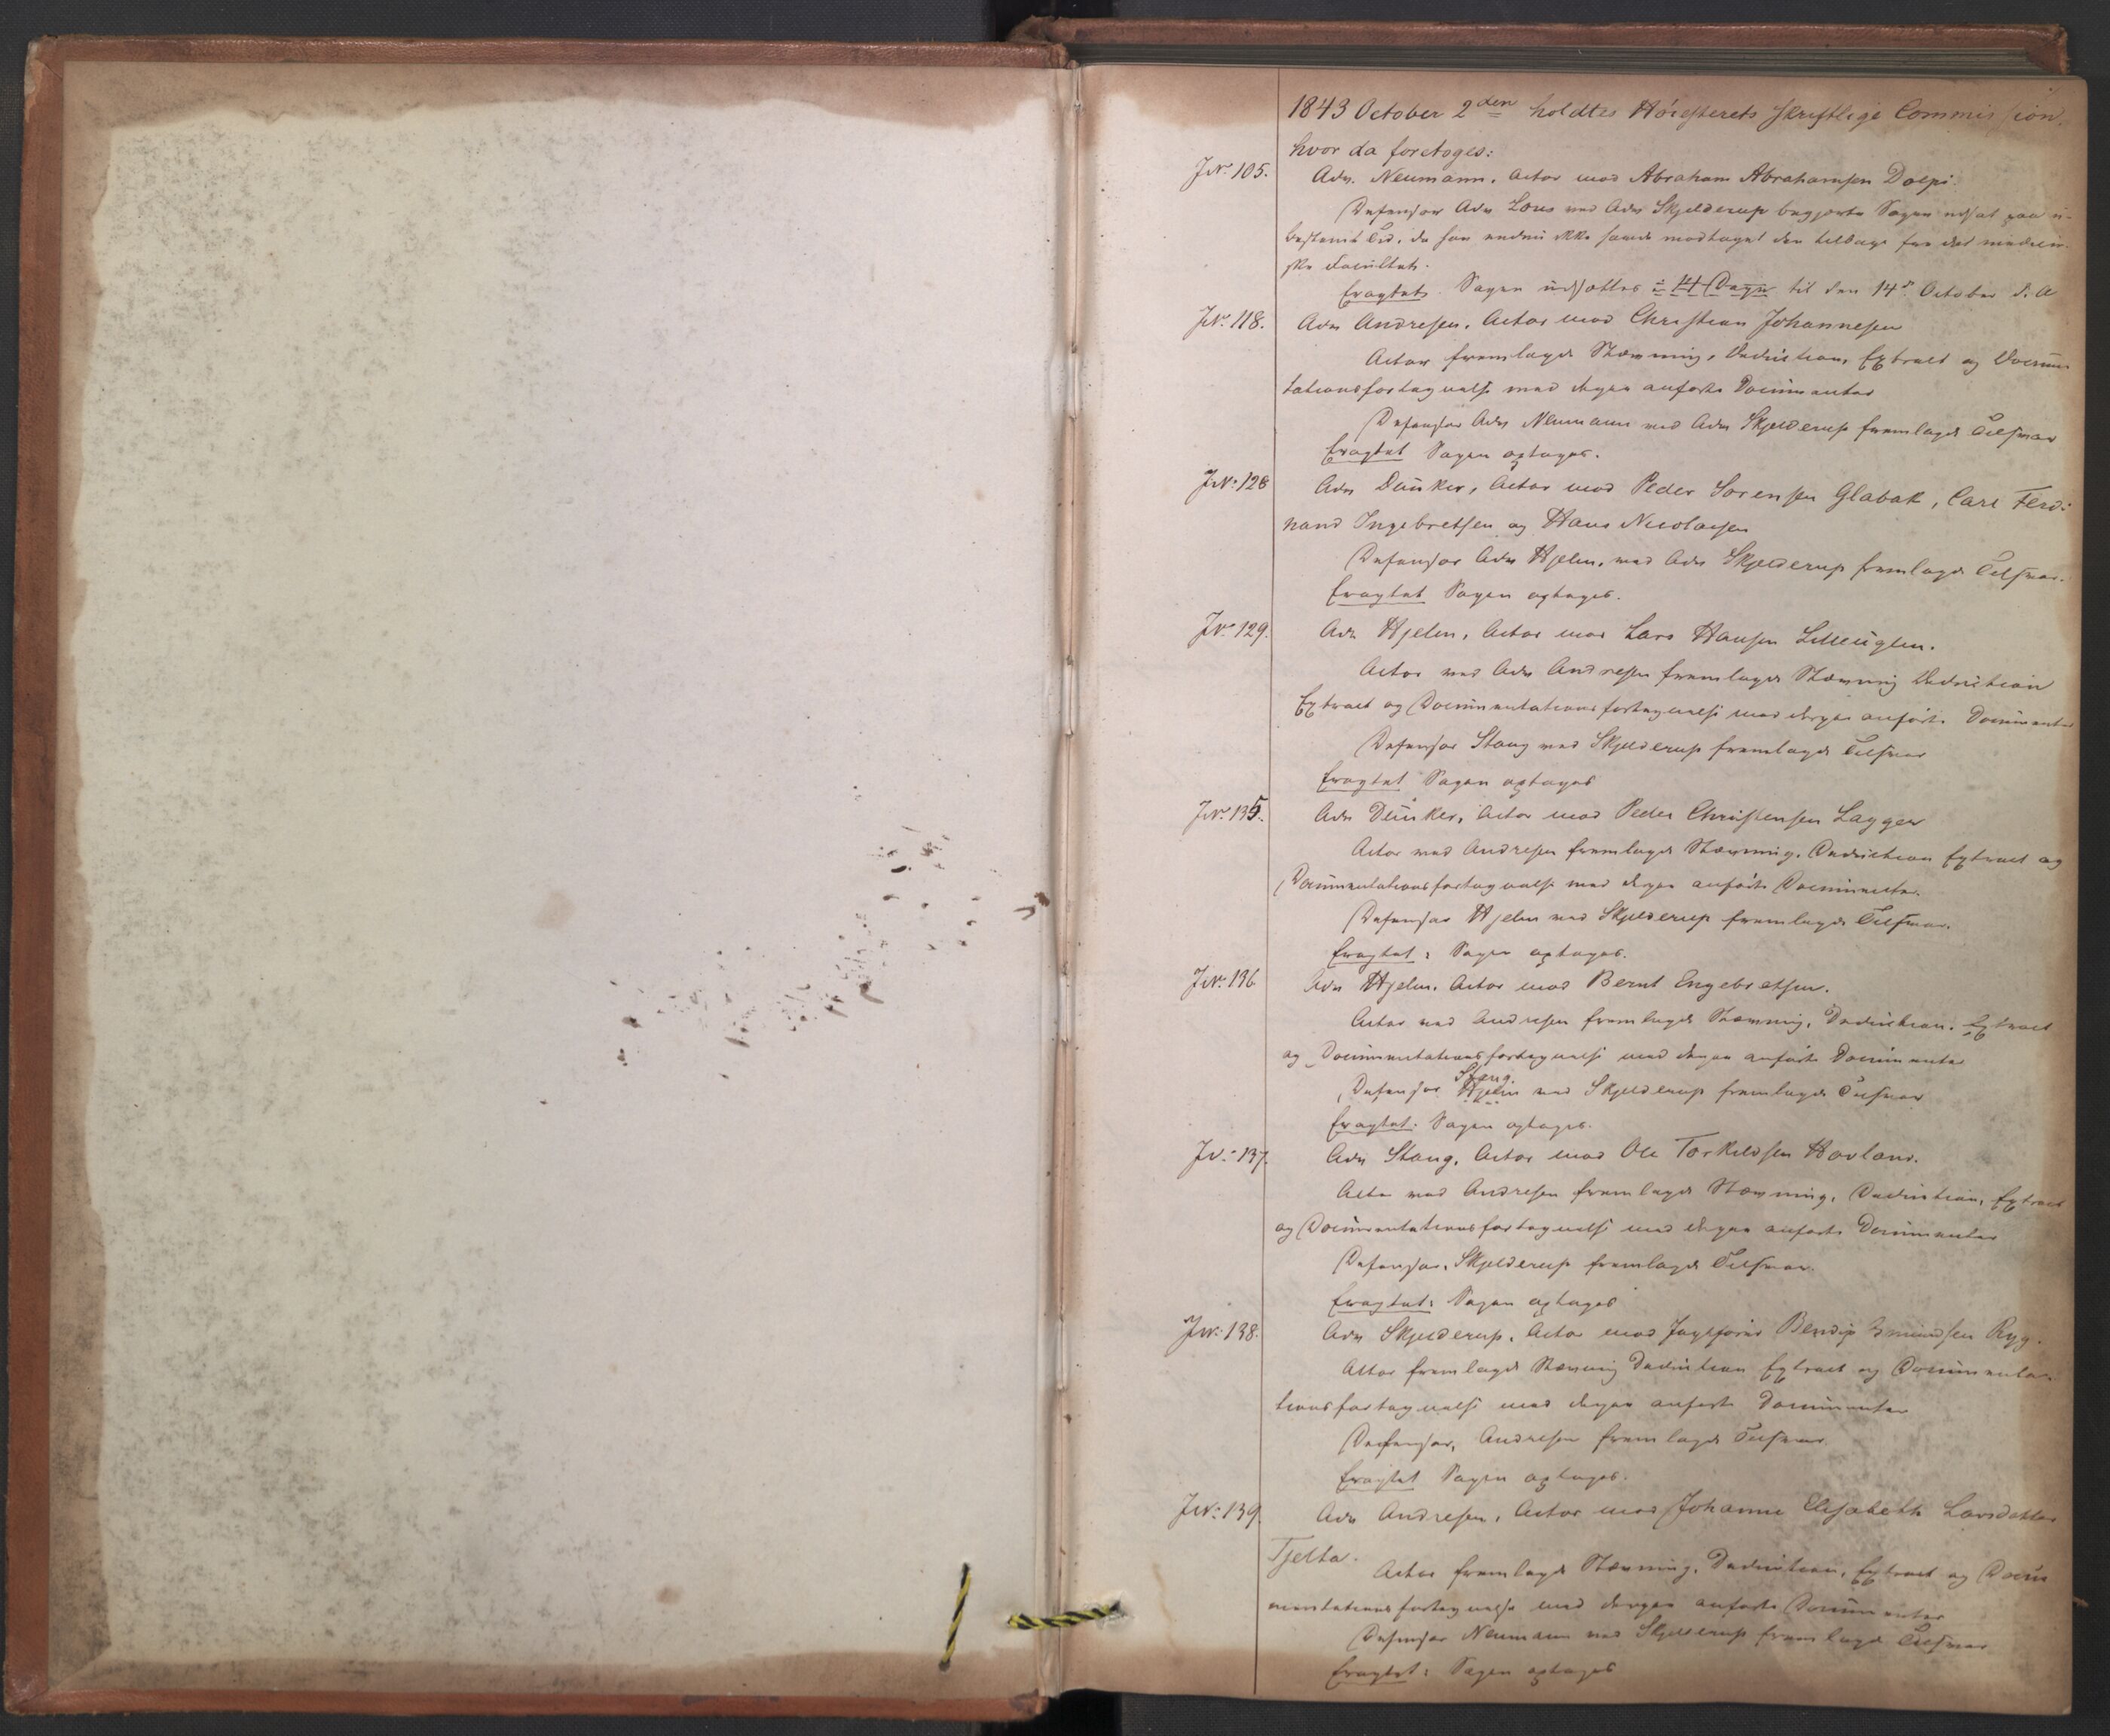 1843 October 2den holdtes Höiesterets skriftlige Commission,
hvor da foretoges:
JNo 105. Adv. Neumann, Actor mod Abraham Abrahamsen Dolpi.
Defensor Adv Lous ved Adv Skjelderup begjerte Sagen udsat paa u-
bestemt Tid, da han endnu ikke havde modtaget den tilbage fra det medicin-
ske Facultet.
Eragtet Sagen udsættes i 14 Dage til den 14de October d. A
JNo 118. Adv Andresen, Actor mod Christian Johannesen
Actor fremlagde Stævning, Deduction, Extract og Docum
tationsfortegnelse med deri anførte Documenter
Defensor Adv Neumann ved Adv Skjelderup fremlagde Tilsvar
Eragtet Sagen optages.
JNo 128 Adv Dunker, Actor mod Peder Sorensen Glabak, Carl Ferdi-
nand Ingebretsen og Hans Nicolaisen
Defensor Adv Hjelm, ved Adv Skjelderup fremlagde Tilsvar.
Eragtet Sagen optages.
JNo 129. Adv Hjelm, Actor mod Lars Hansen Lilleuglen.
Actor ved Adv Andresen fremlagde Stævning Deduction
Extract og Documentationsfortegnelse med deri anførte Documenter
Defensor Stang ved Skjelderup fremlagde Tilsvar
Eragtet Sagen optages
JNo 135. Adv Dunker, Actor mod Peder Christensen Lagger
Actor ved Andresen fremlagde Stævning, Deduction Extract og
Documentationsfortegnelse med deri anførte Documenter.
Defensor Hjelm ved Skjelderup fremlagde Tilsvar.
Eragtet: Sagen optages.
JNo 136 Adv Hjelm, Actor mod Bernt Engebretsen.
Actor ved Andresen fremlagde Stævning, Deduction, Extract
og Documentationsfortegnelse med deri anførte Documenter
Stang
Defensor Hjelm ved Skjelderup fremlagde Tilsvar
Eragtet: Sagen optages.
JNo 137. Adv Stang, Actor mod Ole Torkildsen Hovland.
Actor ved Andresen fremlagde Stævning, Deduction, Extract
og Documentationsfortegnelse med deri anførte Documenter
Defensor, Skjelderup fremlagde Tilsvar.
Eragtet: Sagen optages
JNo 138. Adv Skjelderup, Actor mod Bendix Ryg.
Actor fremlagde Stævning Deduction Extract og Documenta-
tionsfortegnelse med deri anførte Documenter
Defensor, Andresen fremlagde Tilsvar
Eragtet Sagen optages.
JNo 139. Adv Andresen, Actor mod Johanne Elisabeth Larsdatter
Tjelta.
Actor fremlagde Stævning, Deduction, Extract og Docu
mentationsfortegnelse med deri anførte Documenter
Defensor Neumann ved Skjelderup fremlagde Tilsvar
Eragtet: Sagen optages